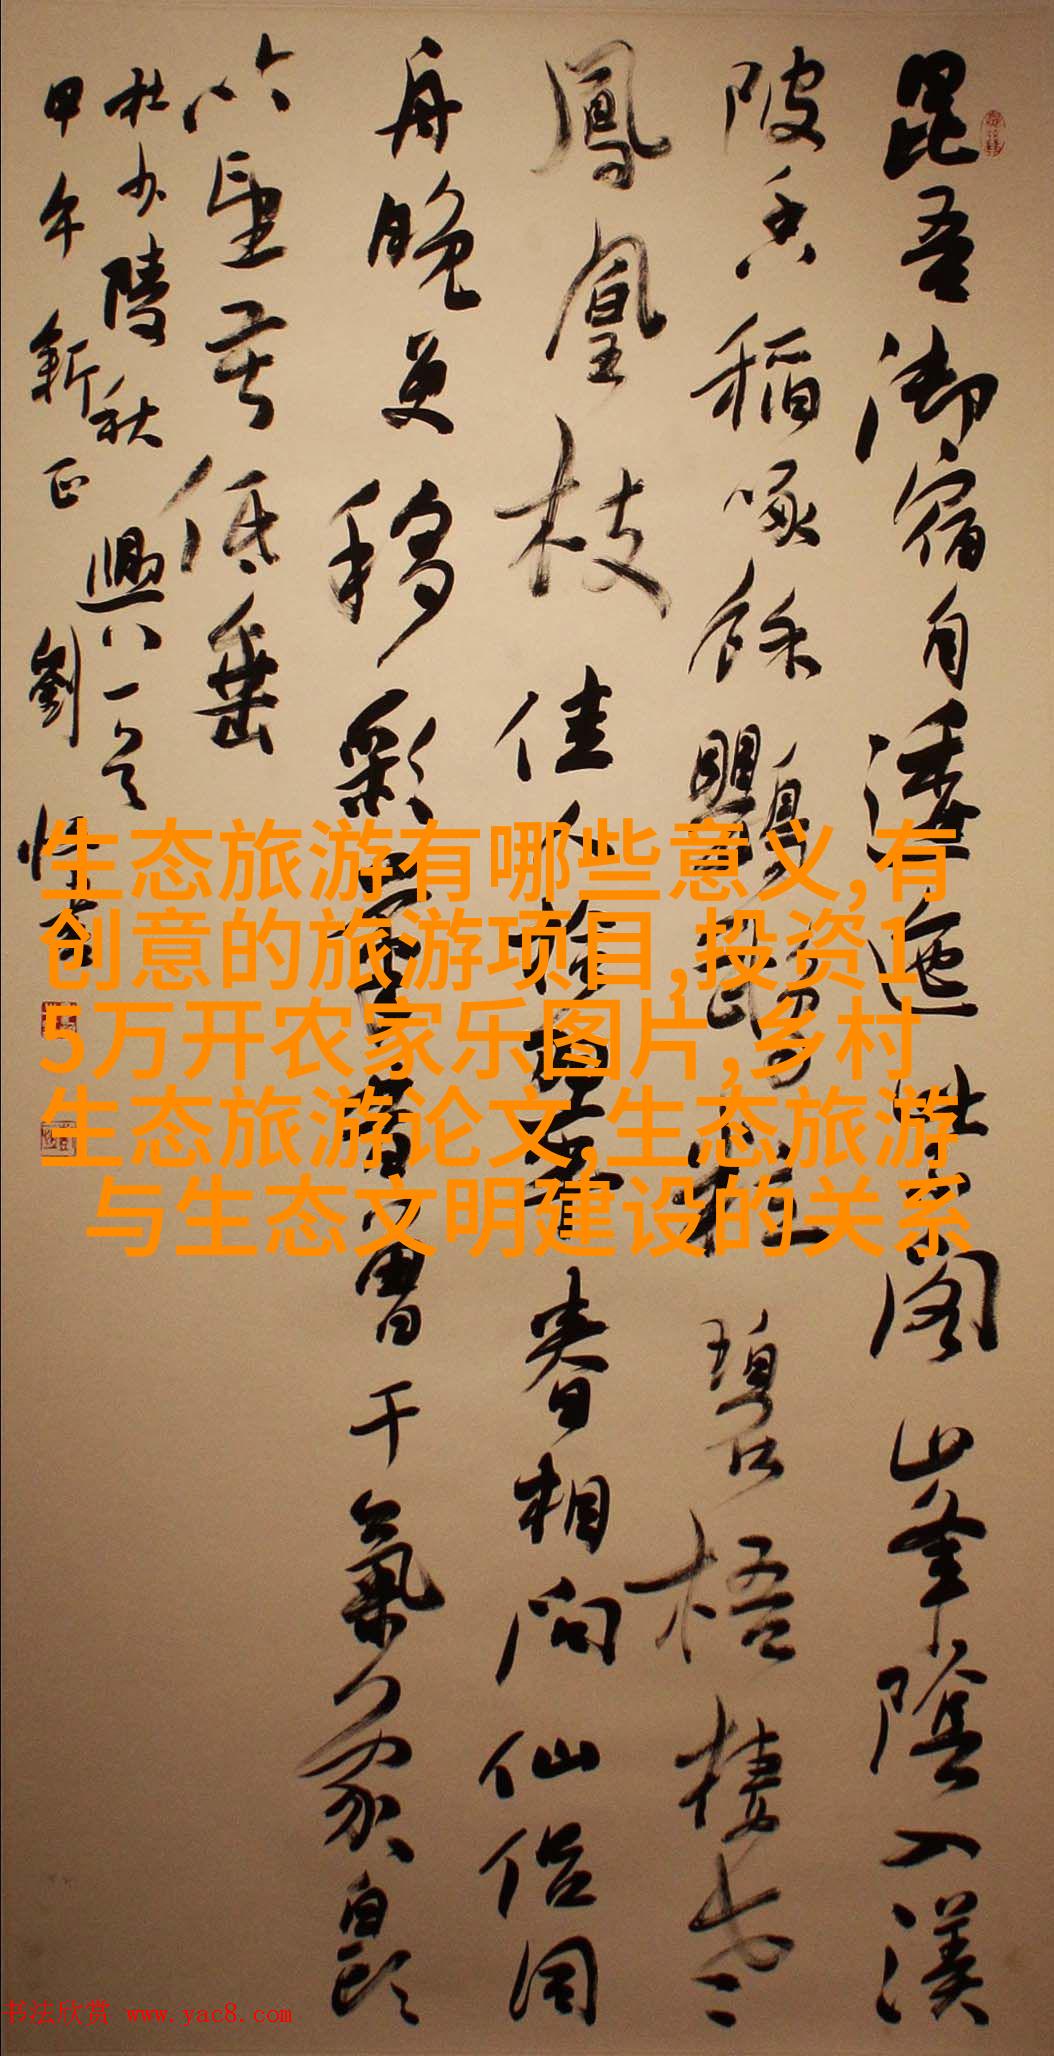 昆吾御宿自逶迤紫閣峯陰入渼
陂香稻啄餘鸚鵡粒碧梧棲老
鳳凰枝佳人拾翠春相問仙侶同
舟晚更移彩筆昔曾干氣象白頭
吟望苦低垂
杜少陵秋興八一首
甲午新正劉恒
生态旅游有哪些意义,有
创意的旅游项目,投资1
5万开农家乐图片,乡村
生态旅游论文,生态旅游
与生态文明建设的关系
书法欣赏 www.yac8.com